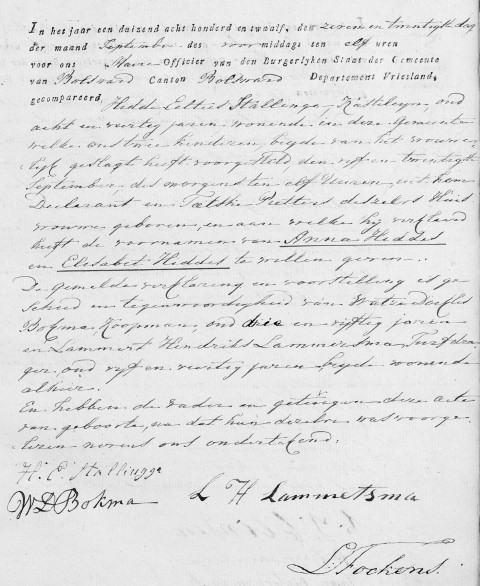 In het jaar een duizend acht honderd en twaalf, den zeven en twintigste dag
der maand September des voor middags ten elf uren
voor ons Maire Officier van den Burgerlyken Staat der Gemeente
van Bolsward Canton Bolsward Departement Vriesland,
gecompareerd Hedde Eelties Stallinga, Kasteleyn, oud
acht en veertig jaren, wonende in deze Gemeente
welke ons twee kinderen, beyde van het vrouwe-
lyk geslagt heeft voorgesteld den vyf en twintigste
September, des morgens ten elf Uuren, uit hem
Declarant en Tætske Pietters deszelvs Huis
vrouwe geboren, en aan welke hy verklaard
heeft de voornamen van Anna Heddes
en Elisabet Heddes te willen geven.
De gemelde verklaring en voorstelling is ge-
schied in tegenwoordigheid van Watze Deefles
Bokma Koopman, oud drie en vyftig jaren
en Lammert Hendriks Lammersma Turfdra-
ger, oud vyf en veertig jaren beyde wonende
alhier.
En hebben de vader en getuigen deze acte
van geboorte, na dat hun dezelve was voorge-
lezen nevens ons ondertekend.
H. E. Stallingga
W D Bokma L H Lammetsma
L. Fockens.